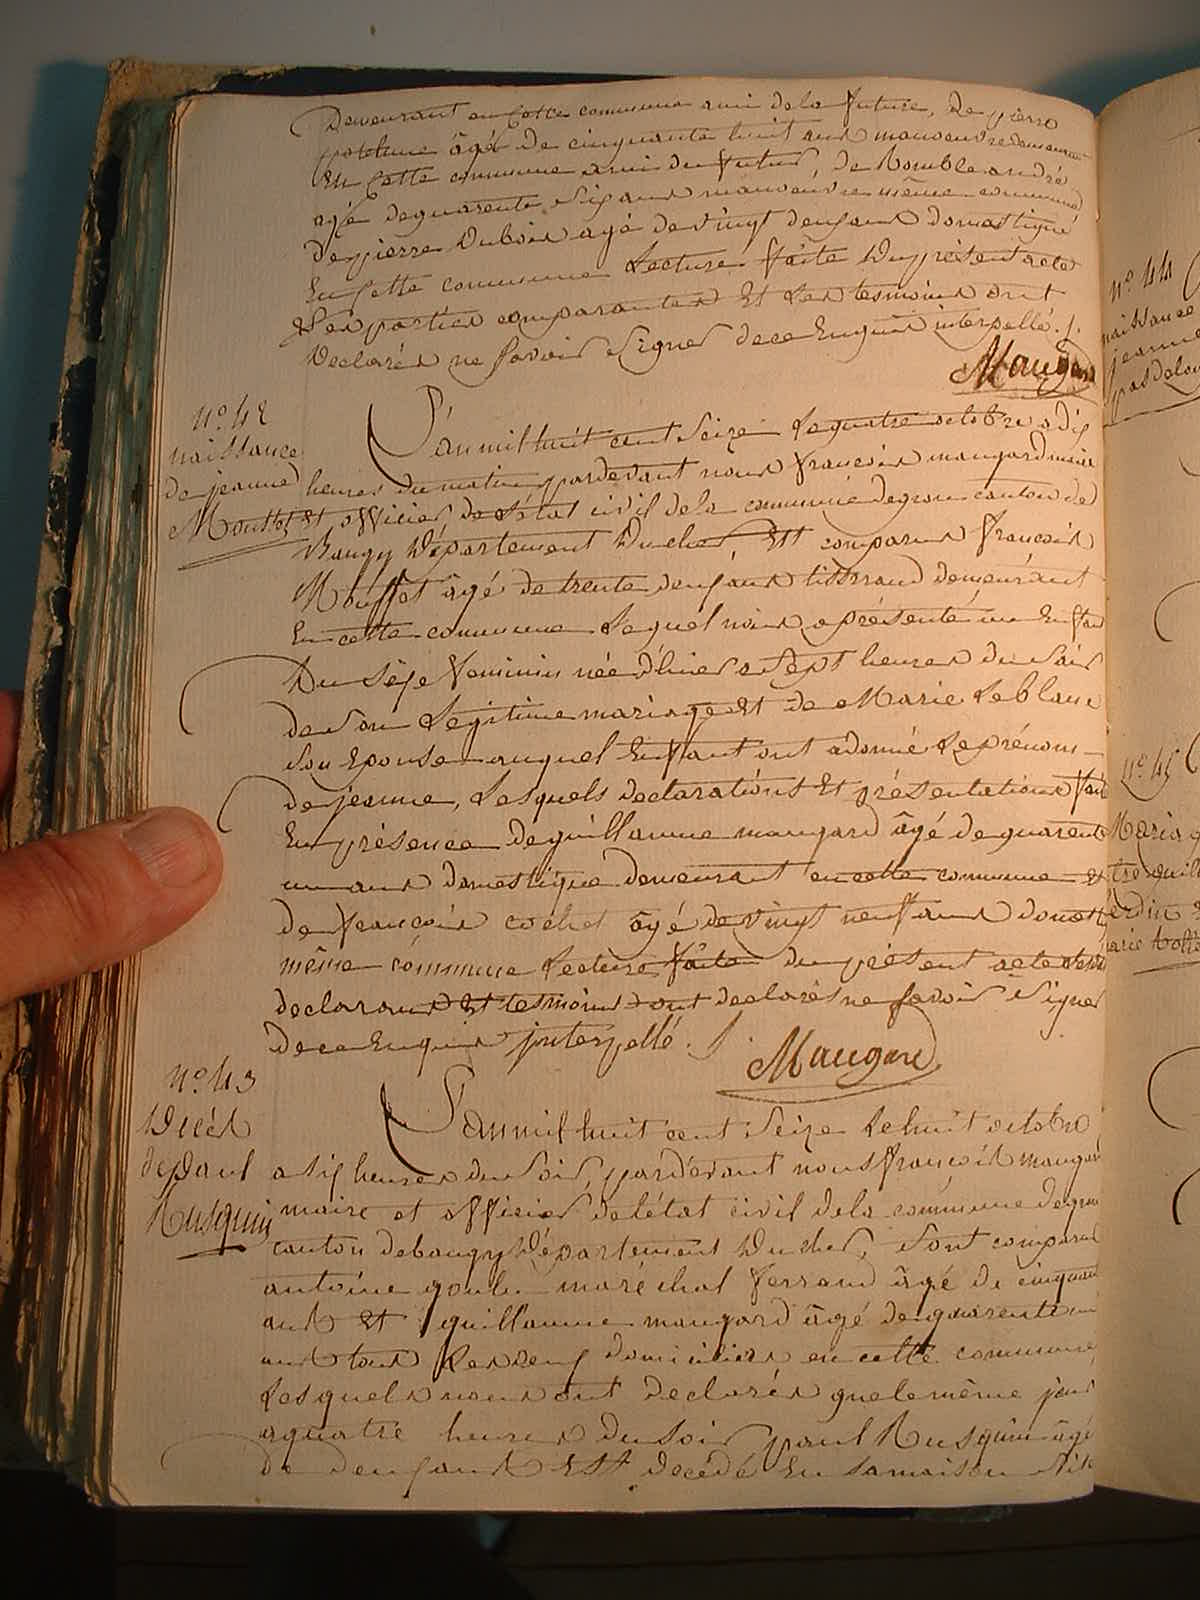 Demeurant en Cette commune ami de la future, De pierre
âgé De cinquante huit ans manoeuvre demeurant
En Cette commune ami du futur, de Romble andré
agé de quarente six ans manoeuvre même commune
de pierre Dubois agé de vingt deux ans domestique
En Cette commune Lecture faite Du présent acte
Les parties comparantes Et Les tesmoins ont
Declarés ne Savoir Signer de ce Enquis interpellé ./.
Maugard
n.o 42
naissance
de jeanne
Moussot
L'an mil huit cent Seize Le quatre octobre a dix
heures du matin pardevant nous françois maugard maire
Et officier de L'état civil de la commune de gron canton de
Baugy Département Du cher, Est comparu françois
Moussot âgé de trente deux ans tisserand demeurant
En cette commune Lequel nous a présenté un Enfant
Du Sexe feminin née d'hier a Sept heures du Soir
de Son Légitime mariage Et de Marie Leblanc
Son Epouse auquel Enfant ont a donné Le prénom
de jeanne, Lesquels declarations Et présentations fait
En présence de guillaume maugard âgé de quarente
un ans domestique demeurant en cette commune et
de françois cochet âgé de vingt neuf ans domest
même commune Lecture faite du présent acte
declarans Et tesmoins ont declarés ne Savoir Signer
de ce Enquis jnterpellé ./.
Maugard
n.o 43
Décès
de paul
Rusquin
L'an mil huit cent Seize Le huit octobre
a Six heures du Soir, pardevant nous françois maugar
maire et officier de l'état civil de la commune de gron
canton de baugy Département Du cher, Sont comparus
antoine maréchal ferrand âgé de cinquante
ans Et guillaume maugard âgé de quarente un
ans tous Les deux domiciliés en cette commune
Lesquels nous ont declarés que le même jour
a quatre heures du Soir paul Rusquin âgé
de deux ans Est decédé En Sa maison
n.o 44
naissance
jeanne
n.o 45
Mariag